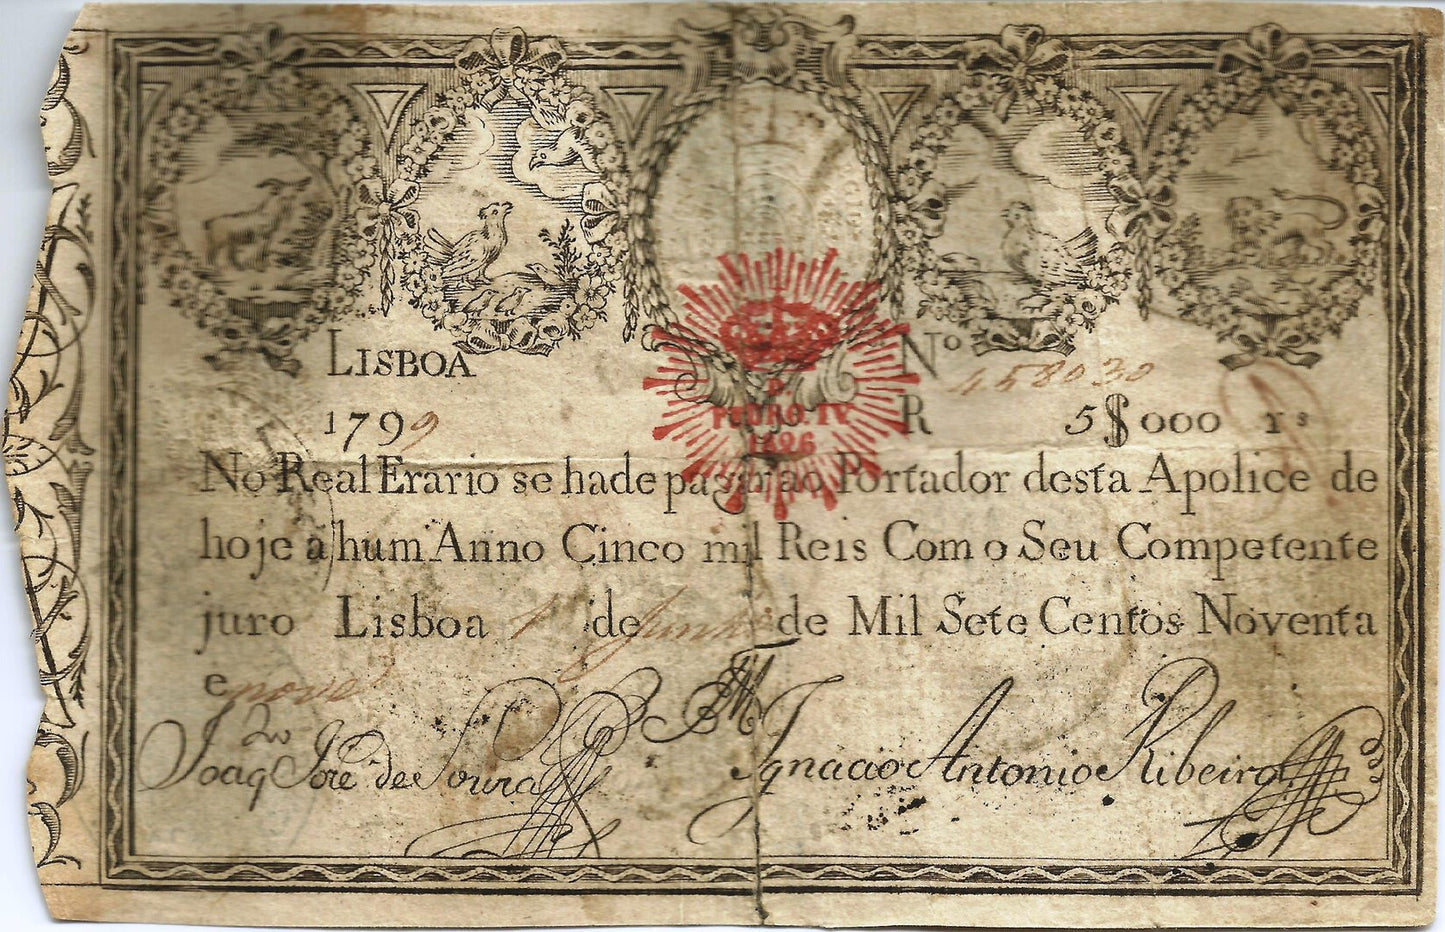 LISBOA
Nº 458030
1799
R 5$000 rs
P.
PEDRO. IV
1826
No Real Erario se hade pagar ao Portador desta Apolice de
hoje a hum Anno Cinco mil Reis Com o Seu Competente
juro Lisboa 1 de de Mil Sete Centos Noventa
e nove
Joaq Jose de Souza
Ignacio Antonio Ribeiro